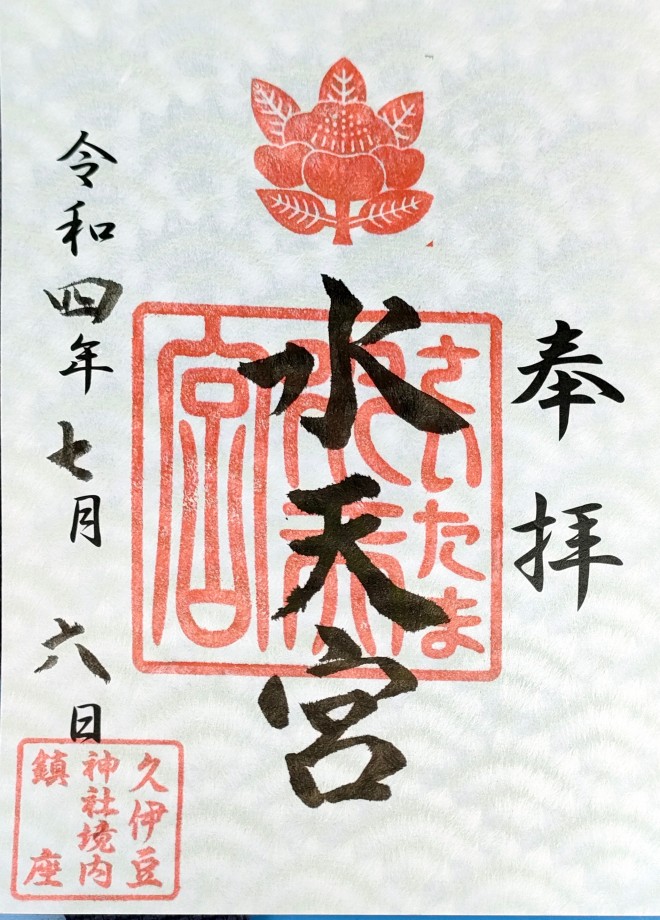 奉拝
さいたま
水天宮
水天宮
令和四年七月六日
久伊豆
神社境内
鎮座